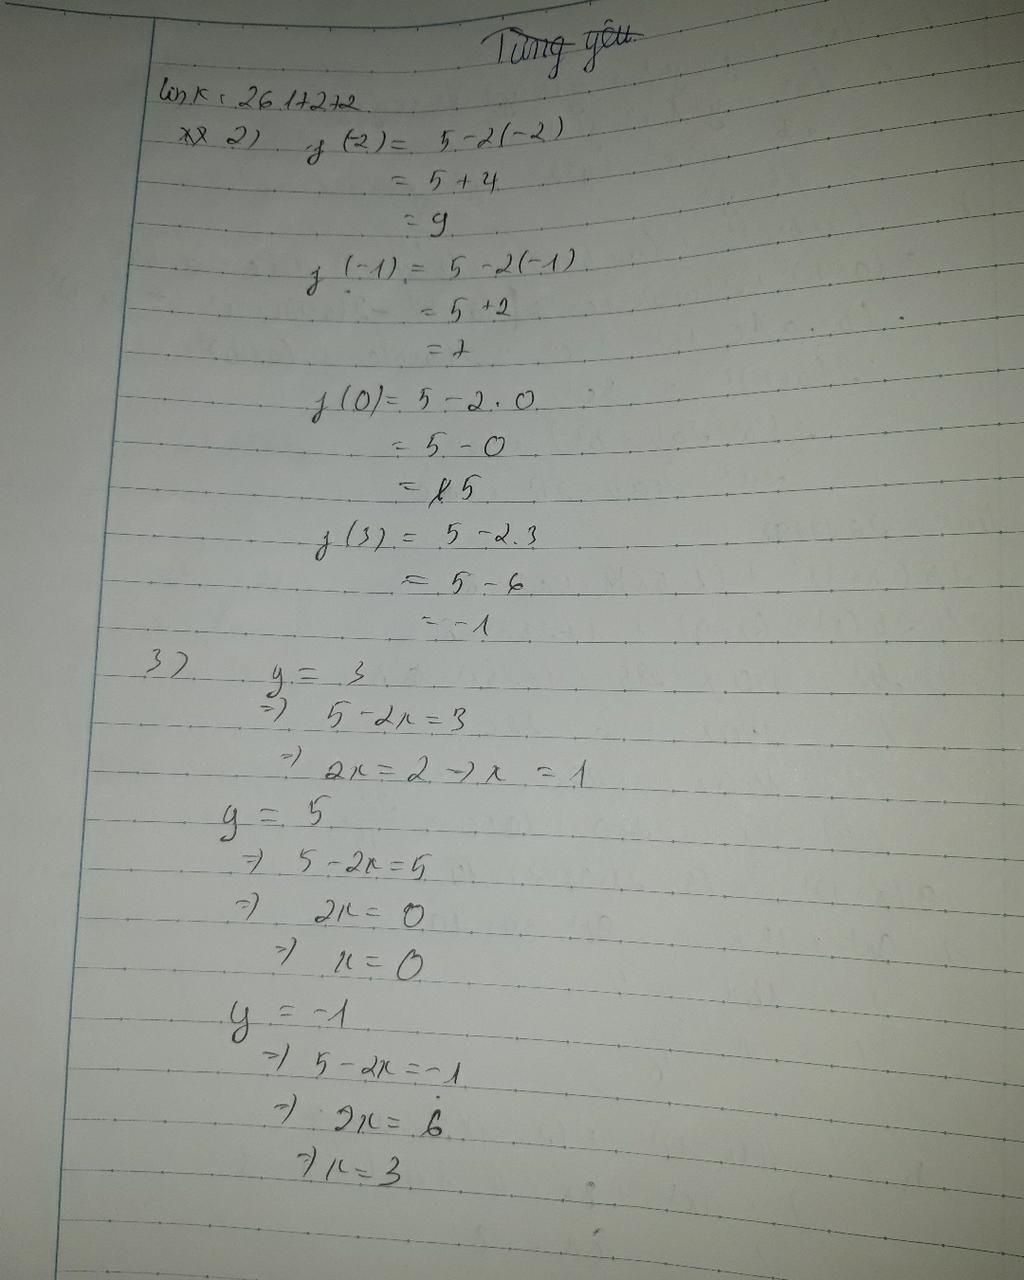 Từng yêu
link: 26 1+2+2
2) f(-2) = 5-2(-2)
= 5+4
= 9
f(-1) = 5-2(-1)
= 5+2
= 7
f(0) = 5-2.0
= 5-0
= 5
f(3) = 5-2.3
= 5-6
= -1
3) y = 3
=> 5-2x=3
=> 2x=2 => x = 1
y = 5
=> 5-2x=5
=> 2x=0
=> x=0
y = -1
=> 5-2x=-1
=> 2x=6
=> x=3